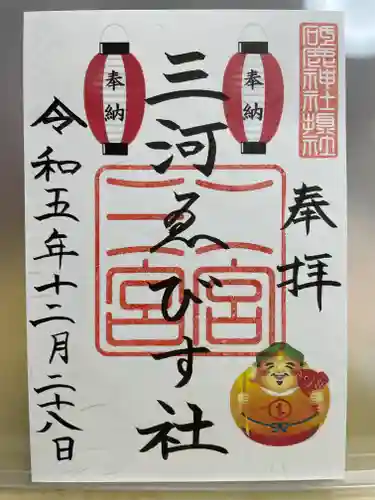 砥鹿神社摂社
奉拝
奉納
奉納
三河ゑびす社
二宮
三宮
令和五年十二月二十八日